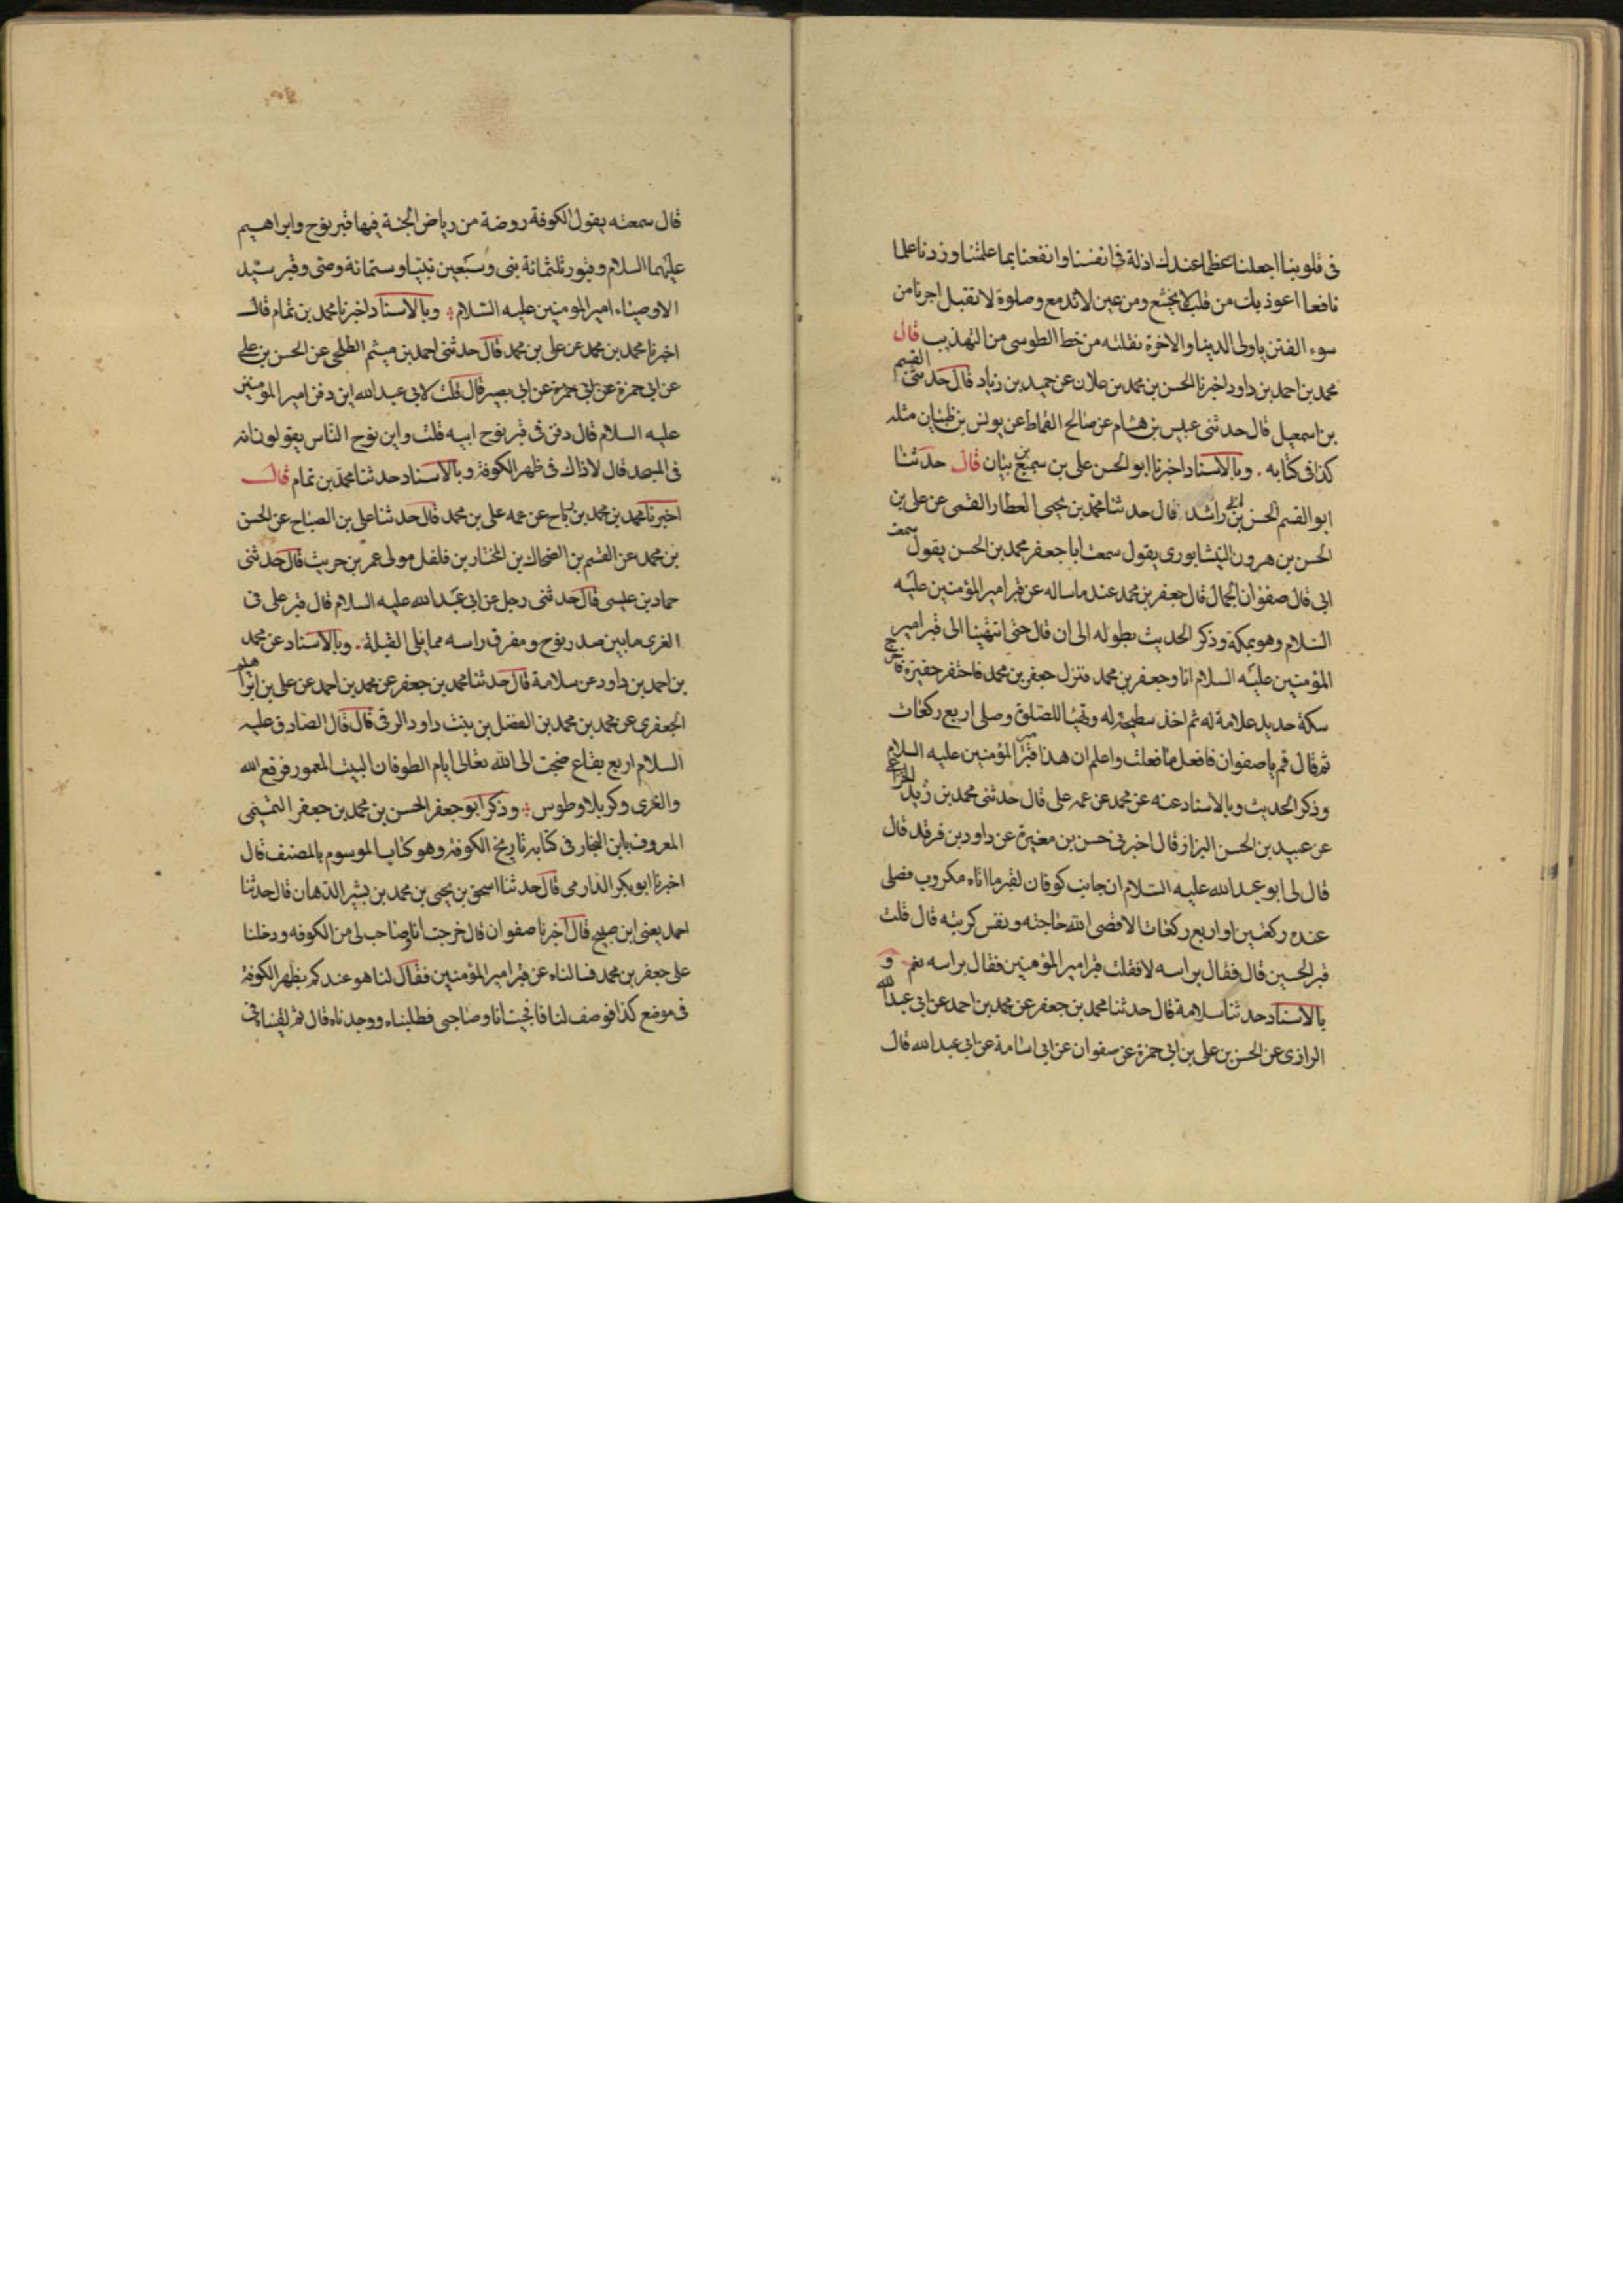 في قلوبنا اجعلنا عظماء عندك اذلة في انفسنا وانفعنا بما علمتنا وزدنا علما
نافعا اعوذ بك من قلب لا يخشع ومن عين لا تدمع وصلوة لا تقبل اجرنا من
سوء الفتن يا ولى الدينا والاخرة نقلته من خط الطوسى من التهذيب قال
محمد بن احمد بن داود اخبرنا الحسن بن محمد بن علان عن حميد بن زياد قال حدثنى القسم
بن اسمعيل قال حدثنى عبلس بن هشام عن صالح القماط عن يونس بن ظبيان مثله
كذا فى كتابه . وبالاسناد اخبرنا ابو الحسن على بن سميع بن بنان قال حدثنا
ابو القسم الحسن بن راشد قال حدثنا محمد بن يحيى العطار القمى عن على بن
الحسن بن هرون النيشابورى يقول سمعت ابا جعفر محمد بن الحسن يقول سمعت
ابى قال صفوان الجمال قال جعفر بن محمد عند ما ساله عن قبر امير المؤمنين عليه
السلام وهو بمكة وذكر الحديث بطوله الى ان قال حتى انتهينا الى قبر امير
المؤمنين عليه السلام انا وجعفر بن محمد فنزل جعفر بن محمد فاحتفر حفيرة فاخرج
سكة حديد علامة له ثم اخذ سطيحة له وتهيا للصلوة وصلى اربع ركعات
ثم قال قم يا صفوان فافعل ما فعلت واعلم ان هذا قبر امير المؤمنين عليه السلام
وذكر الحديث وبالاسناد عنه عن محمد عن عمه على قال حدثنى محمد بن زيد
عن عبيد بن الحسن البزاز قال اخبرنى حسن بن مغيرة عن داود بن فرقد قال
قال لى ابو عبد الله عليه السلام ان جانب كوفان لقبر ما اتاه مكروب فصلى
عنده ركعتين او اربع ركعات الا قضى الله حاجته ونفس كربته قال قلت
قبر الحسين قال فقال براسه لا فقلت قبر امير المؤمنين فقال براسه نعم و
بالاسناد حدثنا سلامة قال حدثنا محمد بن جعفر عن محمد بن احمد عن ابى عبد الله
الرازى عن الحسن بن على بن ابى حمزة عن صفوان عن ابى اسامة عن ابى عبد الله قال
قال سمعته يقول الكوفة روضة من رياض الجنة فيها قبر نوح وابراهيم
عليهما السلام وقبور ثلثمائة نبى وسبعين نبيا وستمائة وصى وقبر سيد
الاوصياء امير المومنين عليه السلام وبالاسناد اخبرنا محمد بن تمام قال
اخبرنا محمد بن محمد عن على بن محمد قال حدثنى احمد بن ميثم الطلحى عن الحسن بن على
عن ابى حمزة عن ابى حمزة عن ابى بصير قال قلت لابى عبد الله اين دفن امير المؤمنين
عليه السلام قال دفن فى قبر نوح ابيه قلت واين نوح الناس يقولون انه
فى المسجد قال لا ذاك فى ظهر الكوفة وبالاسناد حدثنا محمد بن تمام قال
اخبرنا محمد بن محمد بن رباح عن عمه على بن محمد قال حدثنا على بن الصباح عن الحسن
بن محمد عن القسم بن الضحاك بن المختار بن فلفل مولى عمر بن حريث قال حدثنى
حماد بن عيسى قال حدثنى رجل عن ابى عبد الله عليه السلام قال قبر على فى
الغرى ما بين صدر نوح ومفرق راسه مما يلى القبلة . وبالاسناد عن محمد
بن احمد بن داود عن سلامة قال حدثنا محمد بن جعفر عن محمد بن احمد عن على بن ابراهيم
الجعفرى عن محمد بن محمد بن الفضل بن بنت داود الرقى قال قال الصادق عليه
السلام اربع بقاع ضجت الى الله تعالى ايام الطوفان البيت المعمور فرفع الله
والغرى وكربلا وطوس وذكر ابو جعفر الحسن بن محمد بن جعفر التميمى
المعروف بابن النجار فى كتابه تاريخ الكوفة وهو كتاب الموسوم بالمصنف قال
اخبرنا ابو بكر الدارمى قال حدثنا اسحق بن يحيى بن محمد بن بشير الدهان قال حدثنا
احمد يعنى ابن صبيح قال اخبرنا صفوان قال خرجت انا وصاحب لى من الكوفه ودخلنا
على جعفر بن محمد فسالناه عن قبر امير المؤمنين فقال لنا هو عندكم بظهر الكوفة
فى موضع كذا فوصف لنا فانجيت انا وصاحبى فطلبناه ووجدناه قال ثم لقيناه فى